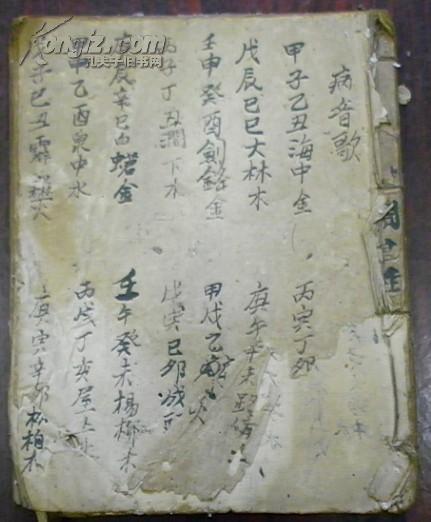 病音歌
甲子乙丑海中金 丙寅丁卯
戊辰巳巳大林木 庚午辛未路傍
壬申癸酉劍鋒金 甲戌乙 火
丙子丁丑澗下水 戊寅巳卯城
庚辰辛巳白蜡金 壬午癸未楊柳木
甲申乙酉泉中水 丙戌丁亥屋上
戊子巳丑霹 火 庚寅辛卯松柏木
kongfz.com
孔夫子旧书网